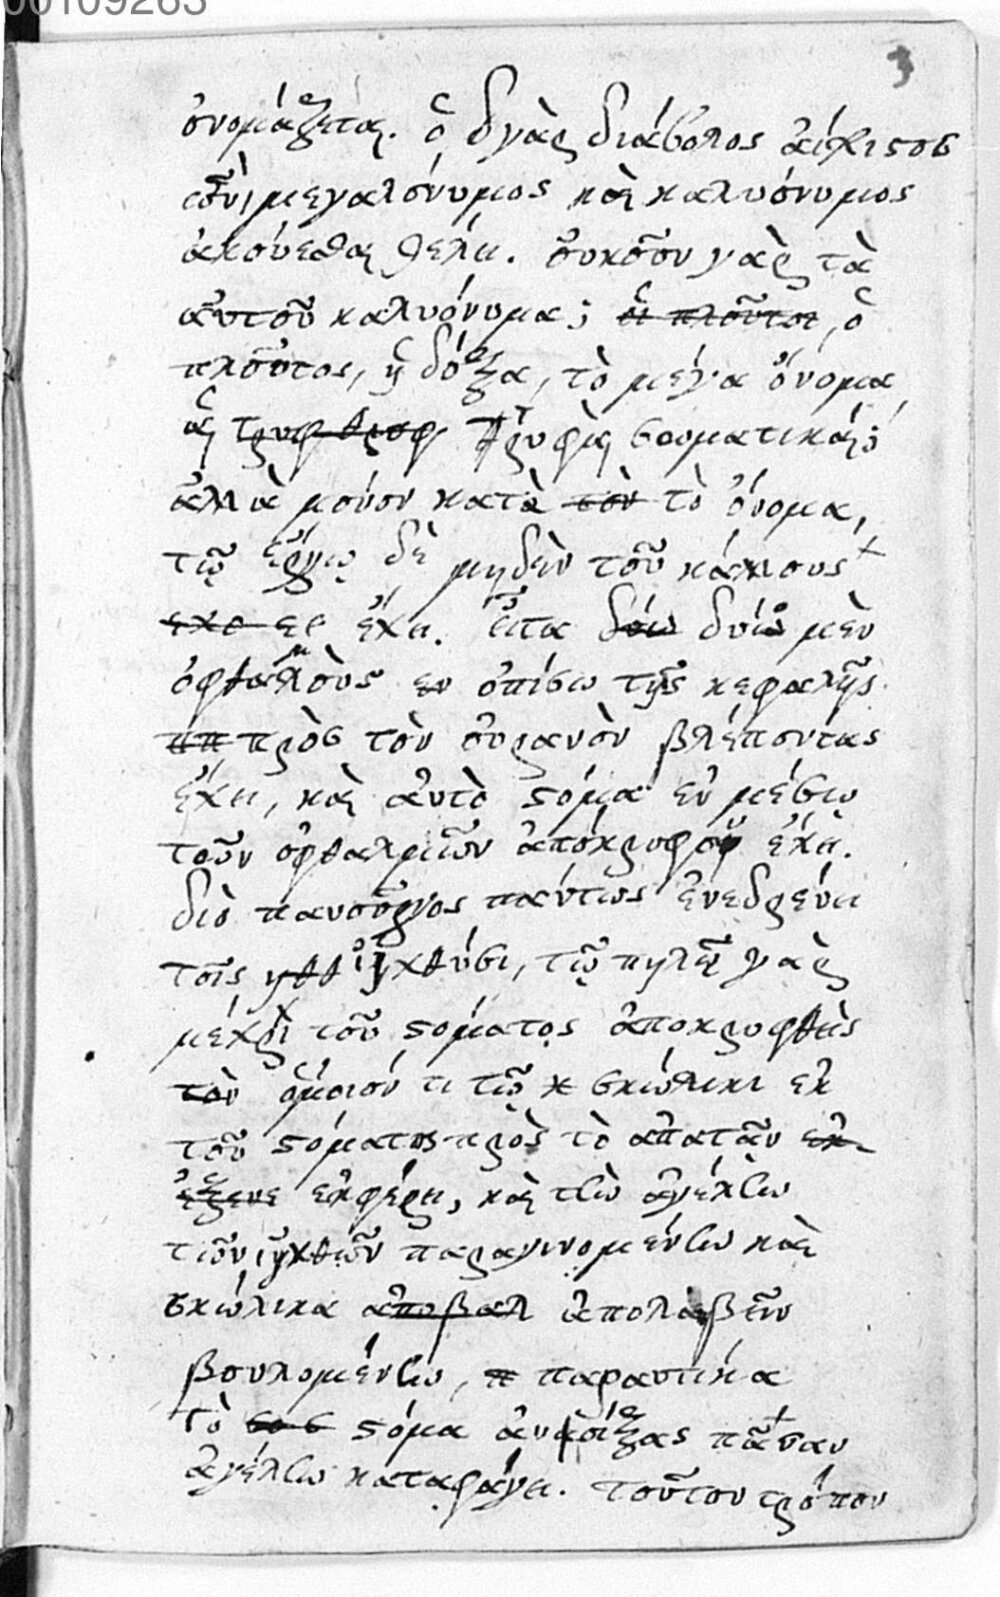 00109263
3
ὀνομάζεται. ὁ γὰρ διάβολος αἴσχιστος
μεγαλόνυμος καὶ καλυόνυμος
ἀκούεσθαι θέλει. οὐκοῦν γὰρ τὰ
αὐτοῦ καλυόνυμα; οἱ πλοῦτοι, ὁ
πλοῦτος, ἡ δόξα, τὸ μέγα ὄνομα
αἱ τρυφαὶ σοωματικαί;
ἀλλὰ μούνον κατὰ τὸν τὸ ὄνομα,
τῷ ἔργῳ δὲ μηδὲν τοῦ κάλλους
εχο ει ἔχει. εἶτα δύω δύω μὲν
ὀφθαλμοὺς εν ὀπίσω τῆς κεφαλῆς
πρὸς τὸν οὐρανὸν βλέποντας
ἔχει, καὶ αὐτὸ στόμα ἐν μέσῳ
τοῦν ὀφθαλμῶν ἀπόκρυφον ἔχει.
διὸ πανοῦργος πάντως ἐνεδρεύει
τοῖς ἰχθύσι, τῷ πηλῷ γὰρ
μέχρι τοῦ στόματος ἀποκρυφθεὶς
τὸν ὁμοιόν τι τῷ σκώληκι ἐκ
τοῦ στόματος πρὸς τὸ ἀπατᾶν ἐκ
ἐκφέρει, καὶ τὴν ἀγέλην
τῶν ἰχθύων παραγινομένην καὶ
σκώλικα αποβαλ ἀπολαβεῖν
βουλομένην, π παραυτίκα
τὸ στόμα ἀνοίξας πᾶσαν
ἀγέλην καταφάγει. τοῦτον τρόπον